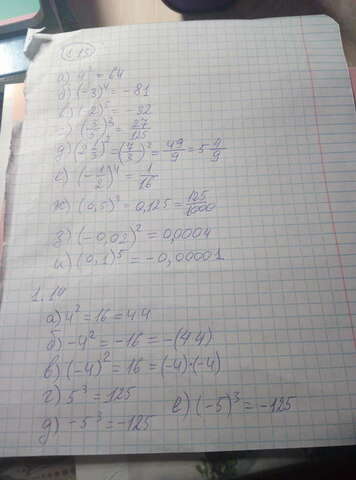 1.13
а) 4³ = 64
б) (-3)⁴ = -81
в) (-2)⁵ = -32
г) (3/5)³ = 27/125
д) (2 1/3)² = (7/3)² = 49/9 = 5 4/9
е) (-1/2)⁴ = 1/16
ж) (0,5)³ = 0,125 = 125/1000
з) (-0,02)² = 0,0004
и) (0,1)⁵ = -0,00001
1.14
а) 4² = 16 = 4·4
б) -4² = -16 = -(4·4)
в) (-4)² = 16 = (-4)·(-4)
г) 5³ = 125
е) (-5)³ = -125
д) -5³ = -125